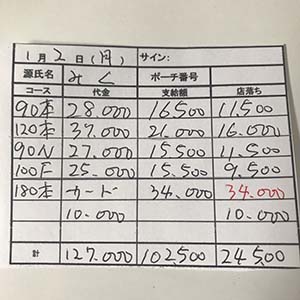 1月2日(月) サイン:
源氏名 みく ポーチ番号
コース 代金 支給額 店落ち
90本 28.000 16500 11500
120本 37.000 21.000 16.000
90N 27.000 15500 11.500
100F 25.000 15.500 9.500
180本 カード 34.000 34.000
10.000 10.000
計 127.000 102.500 24.500